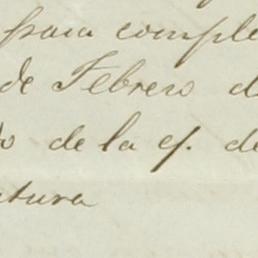 para comple
de Febrero d
o de la ej. de
tura